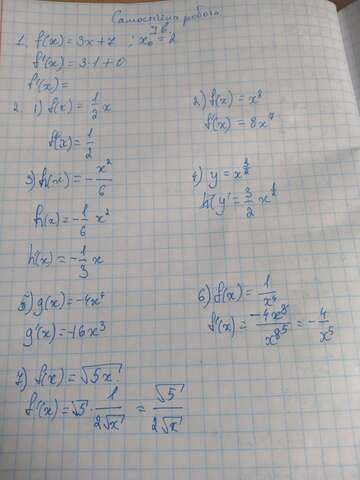 Самостійна робота.
ІВ
1. f(x) = 3x + 7 ; x₀ = 2
f'(x) = 3·1 + 0
f'(x) =
2. 1) f(x) = 1/2 x
f'(x) = 1/2
2) f(x) = x⁸
f'(x) = 8x⁷
3) h(x) = -x²/6
h(x) = -1/6 x²
h'(x) = -1/3 x
4) y = x^(3/2)
y' = 3/2 x^(1/2)
5) g(x) = -4x⁴
g'(x) = -16x³
6) f(x) = 1/x⁴
f'(x) = -4x³/x⁸⁵ = -4/x⁵
7) f(x) = √5x
f'(x) = √5 · 1/2√x = √5/2√x